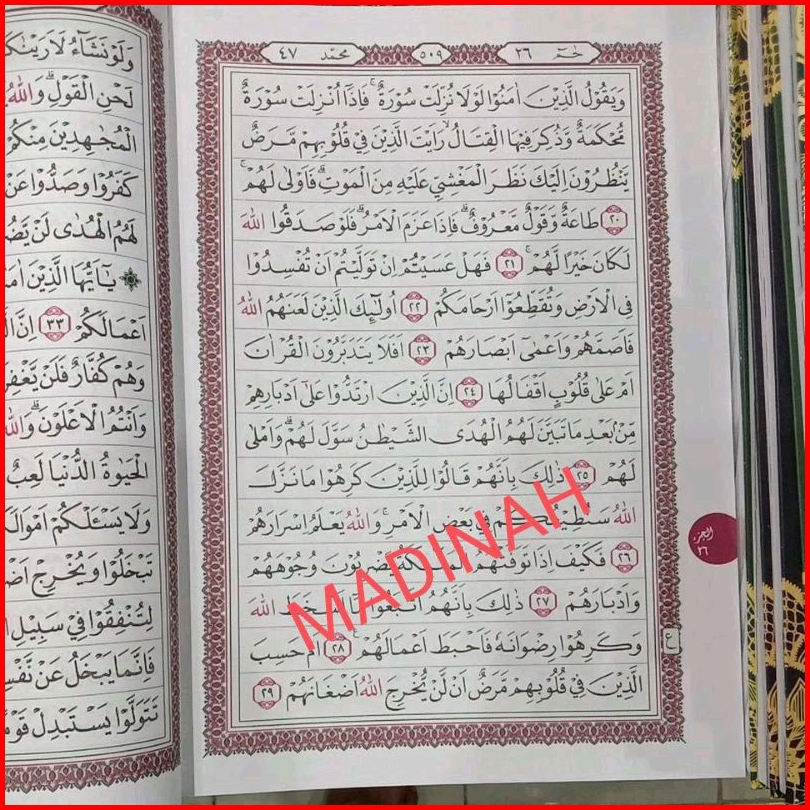 حٰمۤ ٢٦
٥٠٩
محمّد ٤٧
وَيَقُوْلُ الَّذِيْنَ اٰمَنُوْا لَوْلَا نُزِّلَتْ سُوْرَةٌ ۚ فَاِذَآ اُنْزِلَتْ سُوْرَةٌ
مُّحْكَمَةٌ وَّذُكِرَ فِيْهَا الْقِتَالُ ۙ رَاَيْتَ الَّذِيْنَ فِيْ قُلُوْبِهِمْ مَّرَضٌ
يَّنْظُرُوْنَ اِلَيْكَ نَظَرَ الْمَغْشِيِّ عَلَيْهِ مِنَ الْمَوْتِ ۗ فَاَوْلٰى لَهُمْ ۚ
٢٠ طَاعَةٌ وَّقَوْلٌ مَّعْرُوْفٌ ۗ فَاِذَا عَزَمَ الْاَمْرُ ۗ فَلَوْ صَدَقُوا اللّٰهَ
لَكَانَ خَيْرًا لَّهُمْ ۚ ٢١ فَهَلْ عَسَيْتُمْ اِنْ تَوَلَّيْتُمْ اَنْ تُفْسِدُوْا
فِى الْاَرْضِ وَتُقَطِّعُوْٓا اَرْحَامَكُمْ ٢٢ اُولٰۤىِٕكَ الَّذِيْنَ لَعَنَهُمُ اللّٰهُ
فَاَصَمَّهُمْ وَاَعْمٰٓى اَبْصَارَهُمْ ٢٣ اَفَلَا يَتَدَبَّرُوْنَ الْقُرْاٰنَ
اَمْ عَلٰى قُلُوْبٍ اَقْفَالُهَا ٢٤ اِنَّ الَّذِيْنَ ارْتَدُّوْا عَلٰٓى اَدْبَارِهِمْ
مِّنْۢ بَعْدِ مَا تَبَيَّنَ لَهُمُ الْهُدَى الشَّيْطٰنُ سَوَّلَ لَهُمْ ۗ وَاَمْلٰى
لَهُمْ ٢٥ ذٰلِكَ بِاَنَّهُمْ قَالُوْا لِلَّذِيْنَ كَرِهُوْا مَا نَزَّلَ
اللّٰهُ سَنُطِيْعُكُمْ فِيْ بَعْضِ الْاَمْرِ ۚ وَاللّٰهُ يَعْلَمُ اِسْرَارَهُمْ
٢٦ فَكَيْفَ اِذَا تَوَفَّتْهُمُ الْمَلٰۤىِٕكَةُ يَضْرِبُوْنَ وُجُوْهَهُمْ
وَاَدْبَارَهُمْ ٢٧ ذٰلِكَ بِاَنَّهُمُ اتَّبَعُوْا مَآ اَسْخَطَ اللّٰهَ
وَكَرِهُوْا رِضْوَانَهٗ فَاَحْبَطَ اَعْمَالَهُمْ ۚ ٢٨ اَمْ حَسِبَ
الَّذِيْنَ فِيْ قُلُوْبِهِمْ مَّرَضٌ اَنْ لَّنْ يُّخْرِجَ اللّٰهُ اَضْغَانَهُمْ ٢٩
ع
الجزء
٢٦
MADINAH
وَلَوْ نَشَاۤءُ
لَحْنِ الْقَوْلِ ۗ وَاللّٰهُ
الْمُجٰهِدِيْنَ مِنْكُمْ
كَفَرُوْا وَصَدُّوْا عَنْ
لَهُمُ الْهُدٰى لَنْ
يٰٓاَيُّهَا الَّذِيْنَ
اَعْمَالَكُمْ ٣٣
وَهُمْ كُفَّارٌ فَلَنْ
وَاَنْتُمُ الْاَعْلَوْنَ ۗ
الْحَيٰوةُ الدُّنْيَا لَعِبٌ
وَلَا يَسْـَٔلْكُمْ
تَبْخَلُوْا وَيُخْرِجْ
لِتُنْفِقُوْا فِيْ سَبِيْلِ
فَاِنَّمَا يَبْخَلُ عَنْ
تَتَوَلَّوْا يَسْتَبْدِلْ